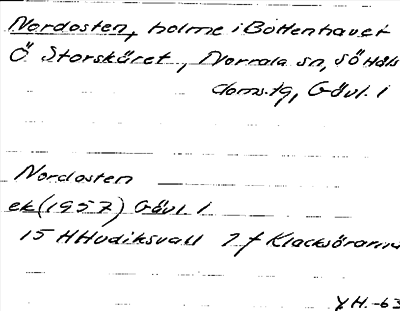 Nordosten, holme i Bottenhavet
Ö Storskäret, Norrala sn, SÖ Häls
doms.tg, Gävl. l
Nordosten
ek (1957) Gävl. l
15 H Hudiksvall 7 f Klacksörarna